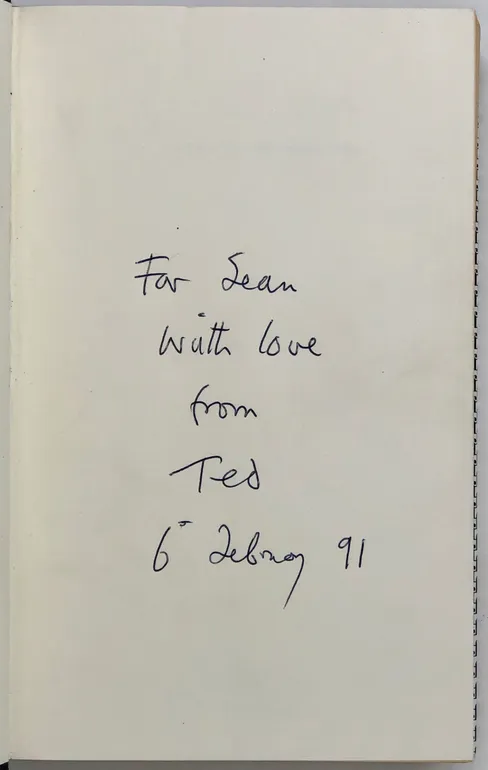 For Sean
With love
from
Ted
6 February 91